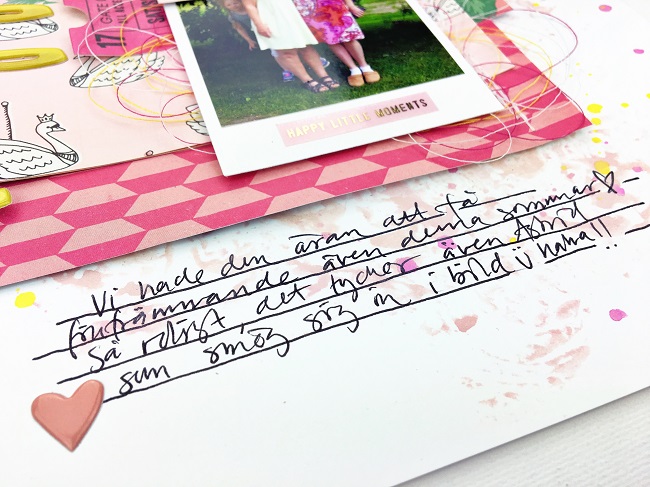 17
HAPPY LITTLE MOMENTS
Vi hade den äran att få
även denna sommar ♡ –
så roligt det tycker även
som smög sig in i bild :) haha!!